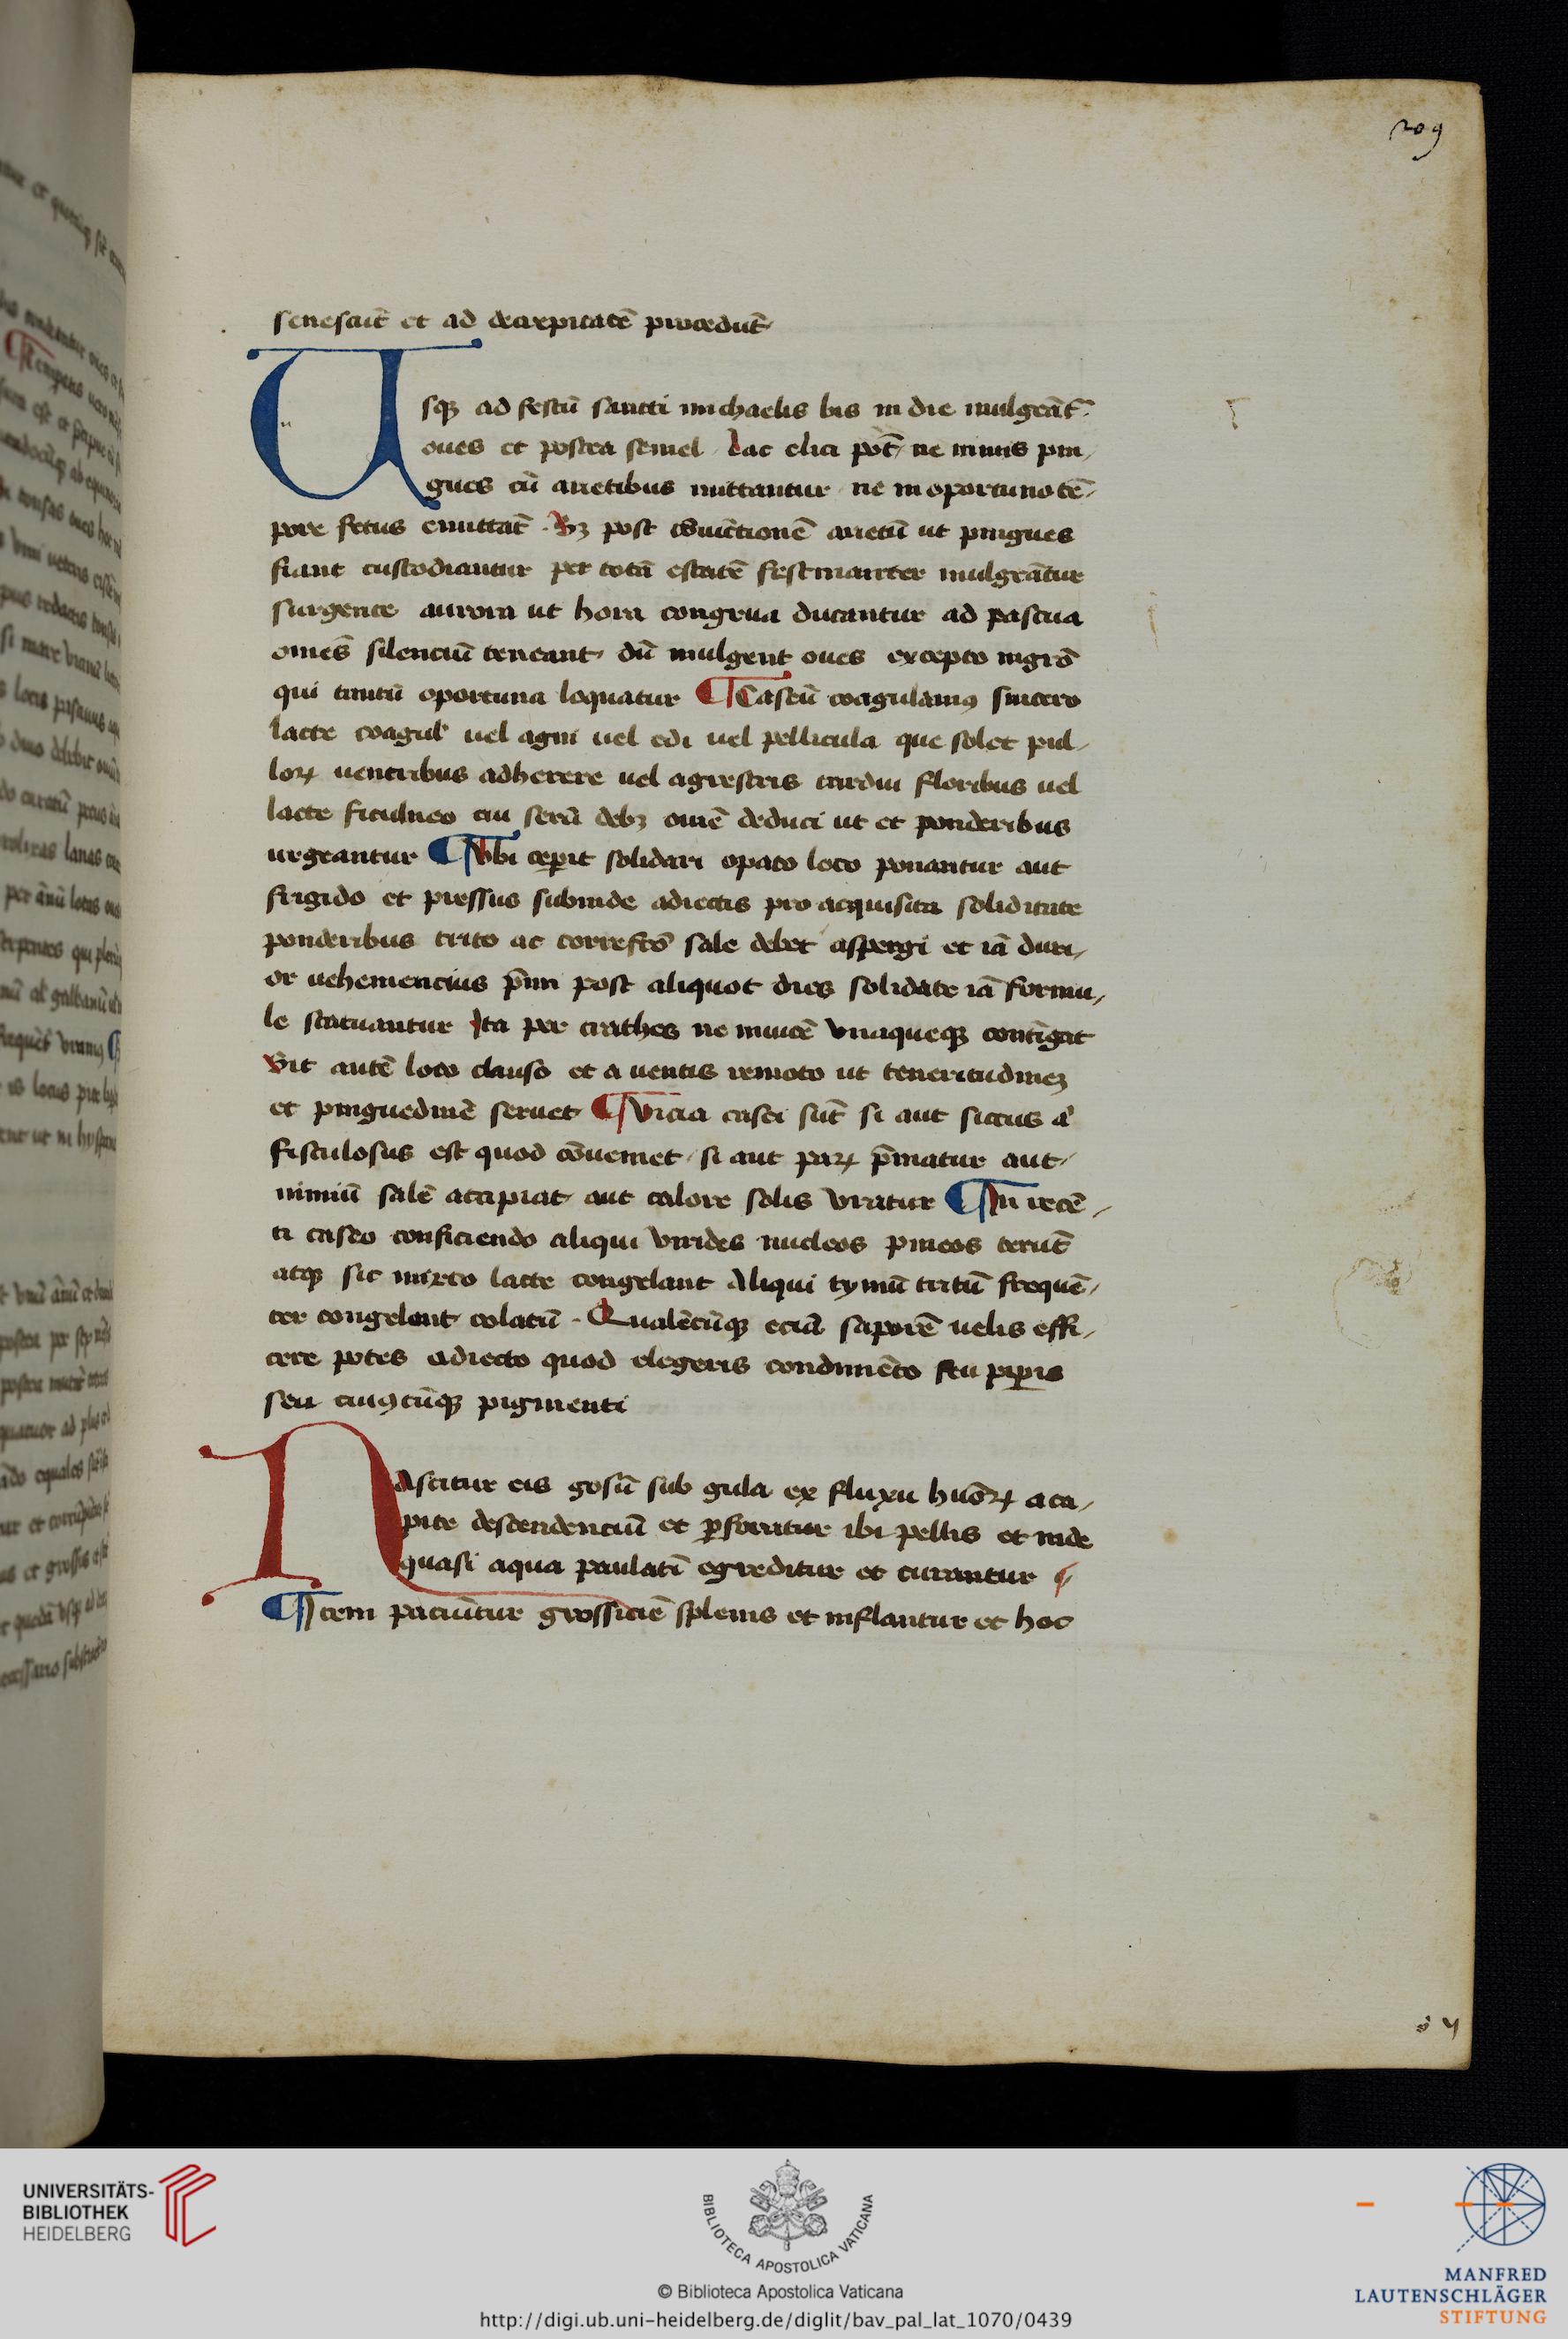 209
senescũt et ad decrepitatẽ procedũt
Usqꝫ ad festũ sancti michaelis bis in die mulgeãt᷑
oues et postea semel lac elici põt ne nimis pin
gues cũ arietibus mittantur ne inoportuno tẽ
pore fetus emittãt Sꝫ post cõiũctionẽ arietũ ut pingues
fiant custodiantur per totã estatẽ festinanter mulgeãtur
surgente aurora ut hora congrua ducantur ad pascua
omẽs silenciũ teneant dũ mulgent oues excepto mgr̃o
qui tantũ oportuna loquatur ¶ Caseũ coagulamꝰ sincero
lacte coagul' uel agni uel edi uel pellicula que solet pul
loꝝ uentribus adherere uel agrestris cardui floribus uel
lacte ficulneo cui serũ debꝫ omẽ deduci ut et ponderibus
urgeantur ¶ Vbi ceꝑit solidari opaco loco ponantur aut
frigido et pressus subinde adiectis pro acquisita soliditate
ponderibus trito ac torrefc̃o sale debet aspergi et iã duri
or uehemencius p̃mi post aliquot dies solidate iã formu
le statuantur Ita per crathes ne inuicẽ vnaqueqꝫ contĩgat
Sit autẽ loco clauso et a uentis remoto ut teneritudineꝫ
et pinguedinẽ seruet ¶ Vicia casei sũt si aut siccus aͭ
fistulosus est quod cõueniet si aut paꝝ p̃matur aut
nimiũ salẽ accipiat aut calore solis vratur ¶ In recẽ
ti caseo conficiendo aliqui virides nucleos pineos terũt
atqꝫ sic mixto lacte congelant Aliqui tymũ tritũ frequẽ
ter congelant colatũ Qualẽcũqꝫ eciã saporẽ uelis effi
cere potes adiecto quod elegeris condimẽto seu piꝑis
seu cuiꝰcũqꝫ pigmenti
Nascitur eis gosũ sub gula ex fluxu huõꝝ a ca
pite descendenciũ et ꝑforatur ibi pellis et inde
quasi aqua paulatĩ egreditur et curantur
¶ Item paciũtur grossiciẽ splenis et inflantur et hoc
UNIVERSITÄTS-
BIBLIOTHEK
HEIDELBERG
BIBLIOTECA APOSTOLICA VATICANA
© Biblioteca Apostolica Vaticana
http://digi.ub.uni-heidelberg.de/diglit/bav_pal_lat_1070/0439
MANFRED
LAUTENSCHLÄGER
STIFTUNG